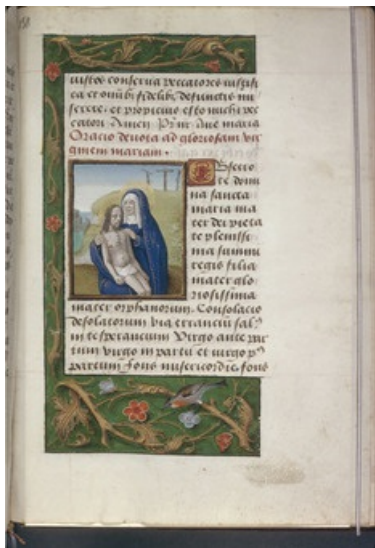 iustos conserua peccatores iustifi
ca et omnib; fidelib; defunctis mi
serere: et propicius esto michi pec
catori Amen Pr̄ nr̄ Aue maria
Oracio deuota ad gloriosam vir
ginem mariam.
Obsecro
te domi
na sancta
maria ma
ter dei pieta
te plenissi
ma summi
regis filia
mater glo
riosissima
mater orphanorum. Consolacio
desolatorum via erranciū sal⁹
in te sperancium Virgo ante par
tum virgo in partu et virgo p⁹
partum fons misericordie. fons